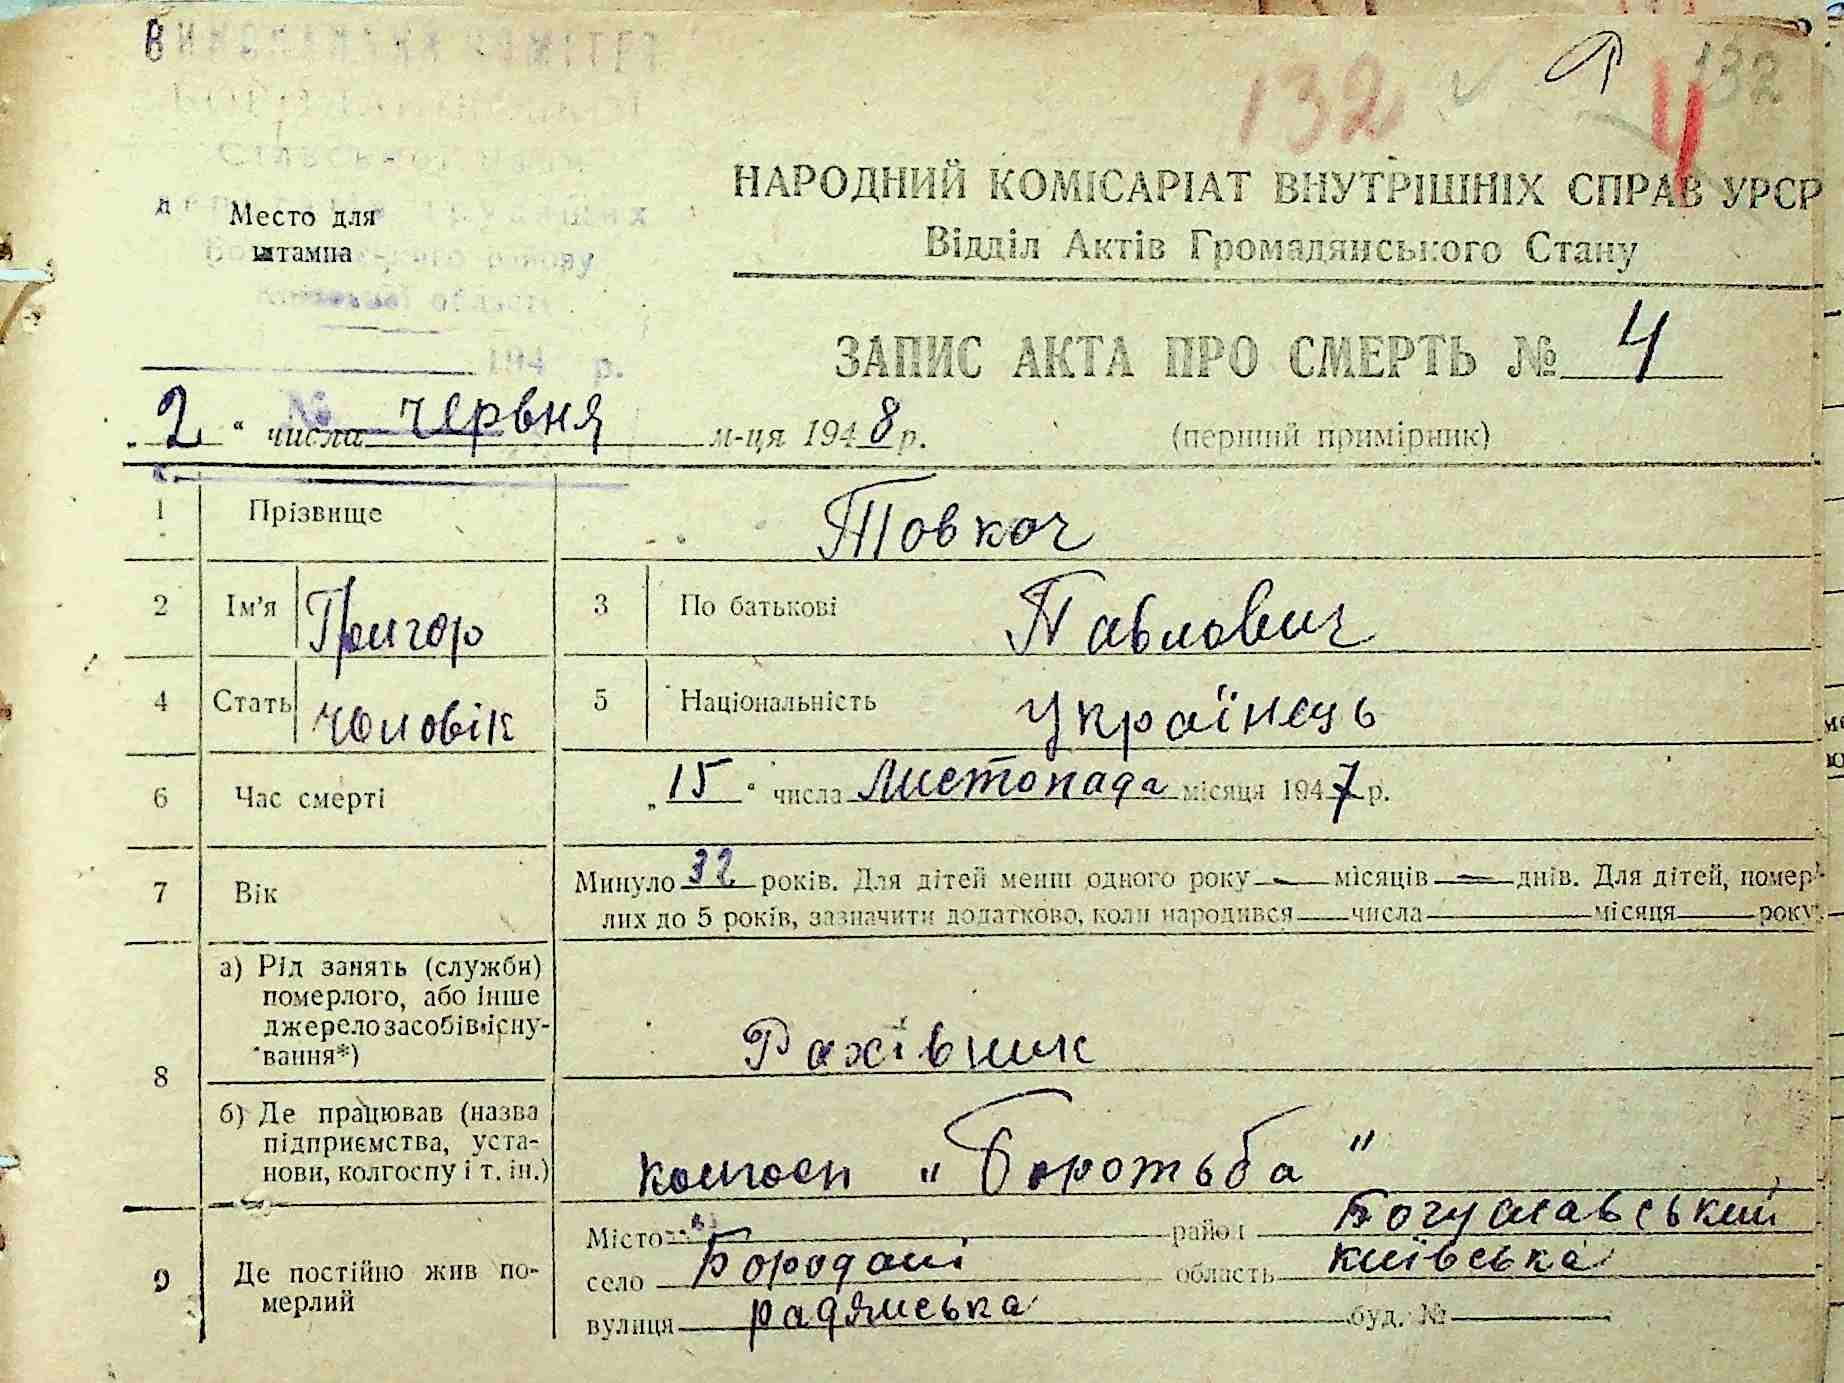 132 132
4
НАРОДНИЙ КОМІСАРІАТ ВНУТРІШНІХ СПРАВ УРСР
Відділ Актів Громадянського Стану
Место для
штампа
194 р.
ЗАПИС АКТА ПРО СМЕРТЬ № 4
№
„ 2 “ числа червня м-ця 1948 р.
(перший примірник)
1 Прізвище Товкач
2 Ім'я Григор 3 По батькові Павлович
4 Стать чоловік 5 Національність українець
6 Час смерті „ 15 “ числа листопада місяця 1947 р.
7 Вік Минуло 32 років. Для дітей менш одного року — місяців — днів. Для дітей, помер-
лих до 5 років, зазначити додатково, коли народився числа місяця року.
8 а) Рід занять (служби)
померлого, або інше
джерело засобів існу-
вання*)
Рахівник
б) Де працював (назва
підприємства, уста-
нови, колгоспу і т. ін.)
колгосп "Боротьба"
9 Де постійно жив по-
мерлий
Місто район Богуславський
село Бородані область київська
вулиця радянська буд. №